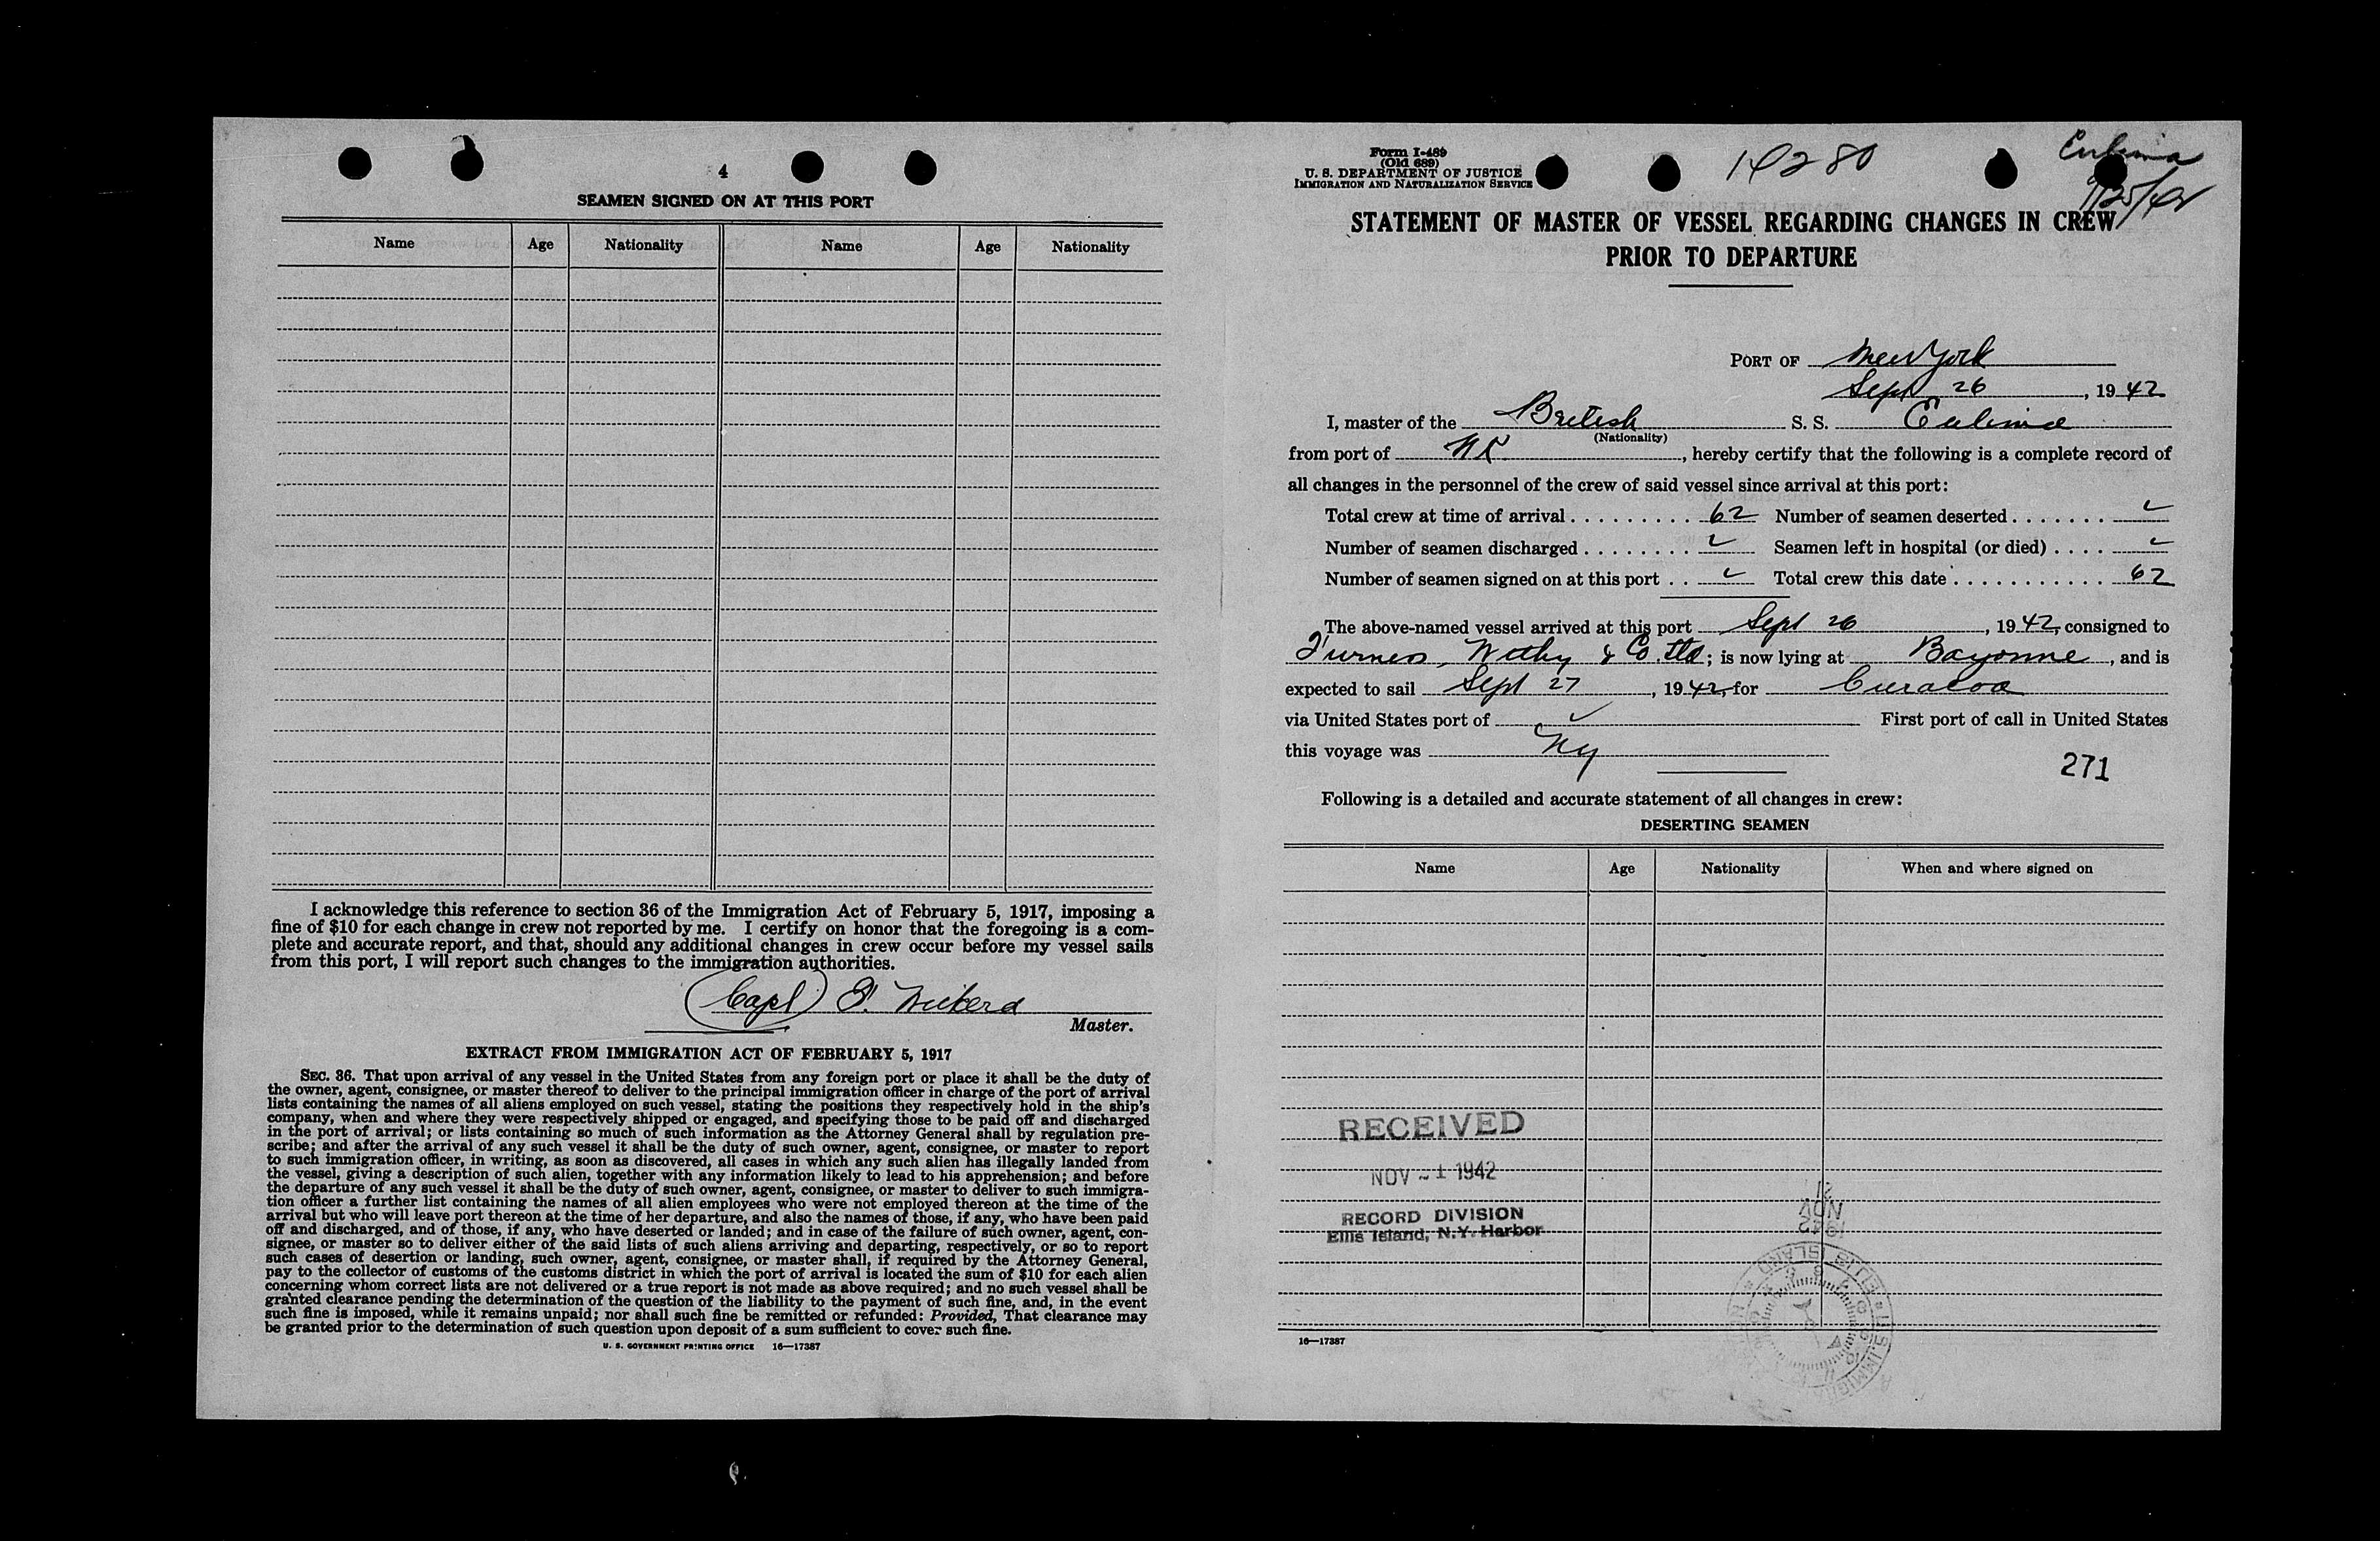 4
SEAMEN SIGNED ON AT THIS PORT
Name Age Nationality Name Age Nationality
I acknowledge this reference to section 36 of the Immigration Act of February 5, 1917, imposing a
fine of $10 for each change in crew not reported by me. I certify on honor that the foregoing is a com-
plete and accurate report, and that, should any additional changes in crew occur before my vessel sails
from this port, I will report such changes to the immigration authorities.
(Capt)
Master.
EXTRACT FROM IMMIGRATION ACT OF FEBRUARY 5, 1917
SEC. 36. That upon arrival of any vessel in the United States from any foreign port or place it shall be the duty of
the owner, agent, consignee, or master thereof to deliver to the principal immigration officer in charge of the port of arrival
lists containing the names of all aliens employed on such vessel, stating the positions they respectively hold in the ship's
company, when and where they were respectively shipped or engaged, and specifying those to be paid off and discharged
in the port of arrival; or lists containing so much of such information as the Attorney General shall by regulation pre-
scribe; and after the arrival of any such vessel it shall be the duty of such owner, agent, consignee, or master to report
to such immigration officer, in writing, as soon as discovered, all cases in which any such alien has illegally landed from
the vessel, giving a description of such alien, together with any information likely to lead to his apprehension; and before
the departure of any such vessel it shall be the duty of such owner, agent, consignee, or master to deliver to such immigra-
tion officer a further list containing the names of all alien employees who were not employed thereon at the time of the
arrival but who will leave port thereon at the time of her departure, and also the names of those, if any, who have been paid
off and discharged, and of those, if any, who have deserted or landed; and in case of the failure of such owner, agent, con-
signee, or master so to deliver either of the said lists of such aliens arriving and departing, respectively, or so to report
such cases of desertion or landing, such owner, agent, consignee, or master shall, if required by the Attorney General,
pay to the collector of customs of the customs district in which the port of arrival is located the sum of $10 for each alien
concerning whom correct lists are not delivered or a true report is not made as above required; and no such vessel shall be
granted clearance pending the determination of the question of the liability to the payment of such fine, and, in the event
such fine is imposed, while it remains unpaid; nor shall such fine be remitted or refunded: Provided, That clearance may
be granted prior to the determination of such question upon deposit of a sum sufficient to cover such fine.
U. S. GOVERNMENT PRINTING OFFICE 16—17387
Form I-489
(Old 689)
U. S. DEPARTMENT OF JUSTICE
IMMIGRATION AND NATURALIZATION SERVICE
Eulima
9/25/42
STATEMENT OF MASTER OF VESSEL REGARDING CHANGES IN CREW
PRIOR TO DEPARTURE
PORT OF New York
Sept 26, 1942
I, master of the British S. S. Eulima
(Nationality)
from port of, hereby certify that the following is a complete record of
all changes in the personnel of the crew of said vessel since arrival at this port:
Total crew at time of arrival . . . . . . . . . 62 Number of seamen deserted . . . . . . .
Number of seamen discharged . . . . . . . . Seamen left in hospital (or died) . . . .
Number of seamen signed on at this port . . Total crew this date . . . . . . . . . . . 62
The above-named vessel arrived at this port Sept 26, 1942, consigned to
Furness, Withy & Co. Ltd; is now lying at Bayonne, and is
expected to sail Sept 27, 1942, for Curacoa
via United States port of First port of call in United States
this voyage was NY
271
Following is a detailed and accurate statement of all changes in crew:
DESERTING SEAMEN
Name Age Nationality When and where signed on
RECEIVED
NOV - 1 1942
RECORD DIVISION
Ellis Island, N.Y. Harbor
16—17387